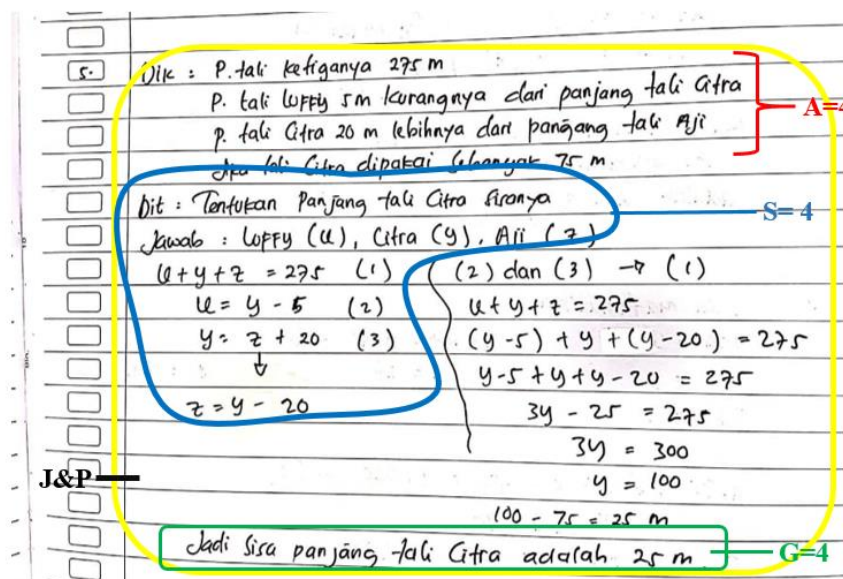 5. Dik : P. tali ketiganya 275 m
P. tali Luffy 5m kurangnya dari panjang tali Citra
A=4
P. tali Citra 20 m lebihnya dari panjang tali Aji
Jika tali Citra dipakai sebanyak 75 m.
Dit : Tentukan Panjang tali Citra sisanya
S= 4
Jawab : Luffy (x), Citra (y), Aji (z)
x+y+z = 275 (1)
x = y - 5 (2)
y = z + 20 (3)
↓
z = y - 20
(2) dan (3) → (1)
x+y+z = 275
(y-5) + y + (y-20) = 275
y-5+y+y-20 = 275
3y - 25 = 275
3y = 300
y = 100
100 - 75 = 25 m
J&P
Jadi sisa panjang tali Citra adalah 25 m
G=4